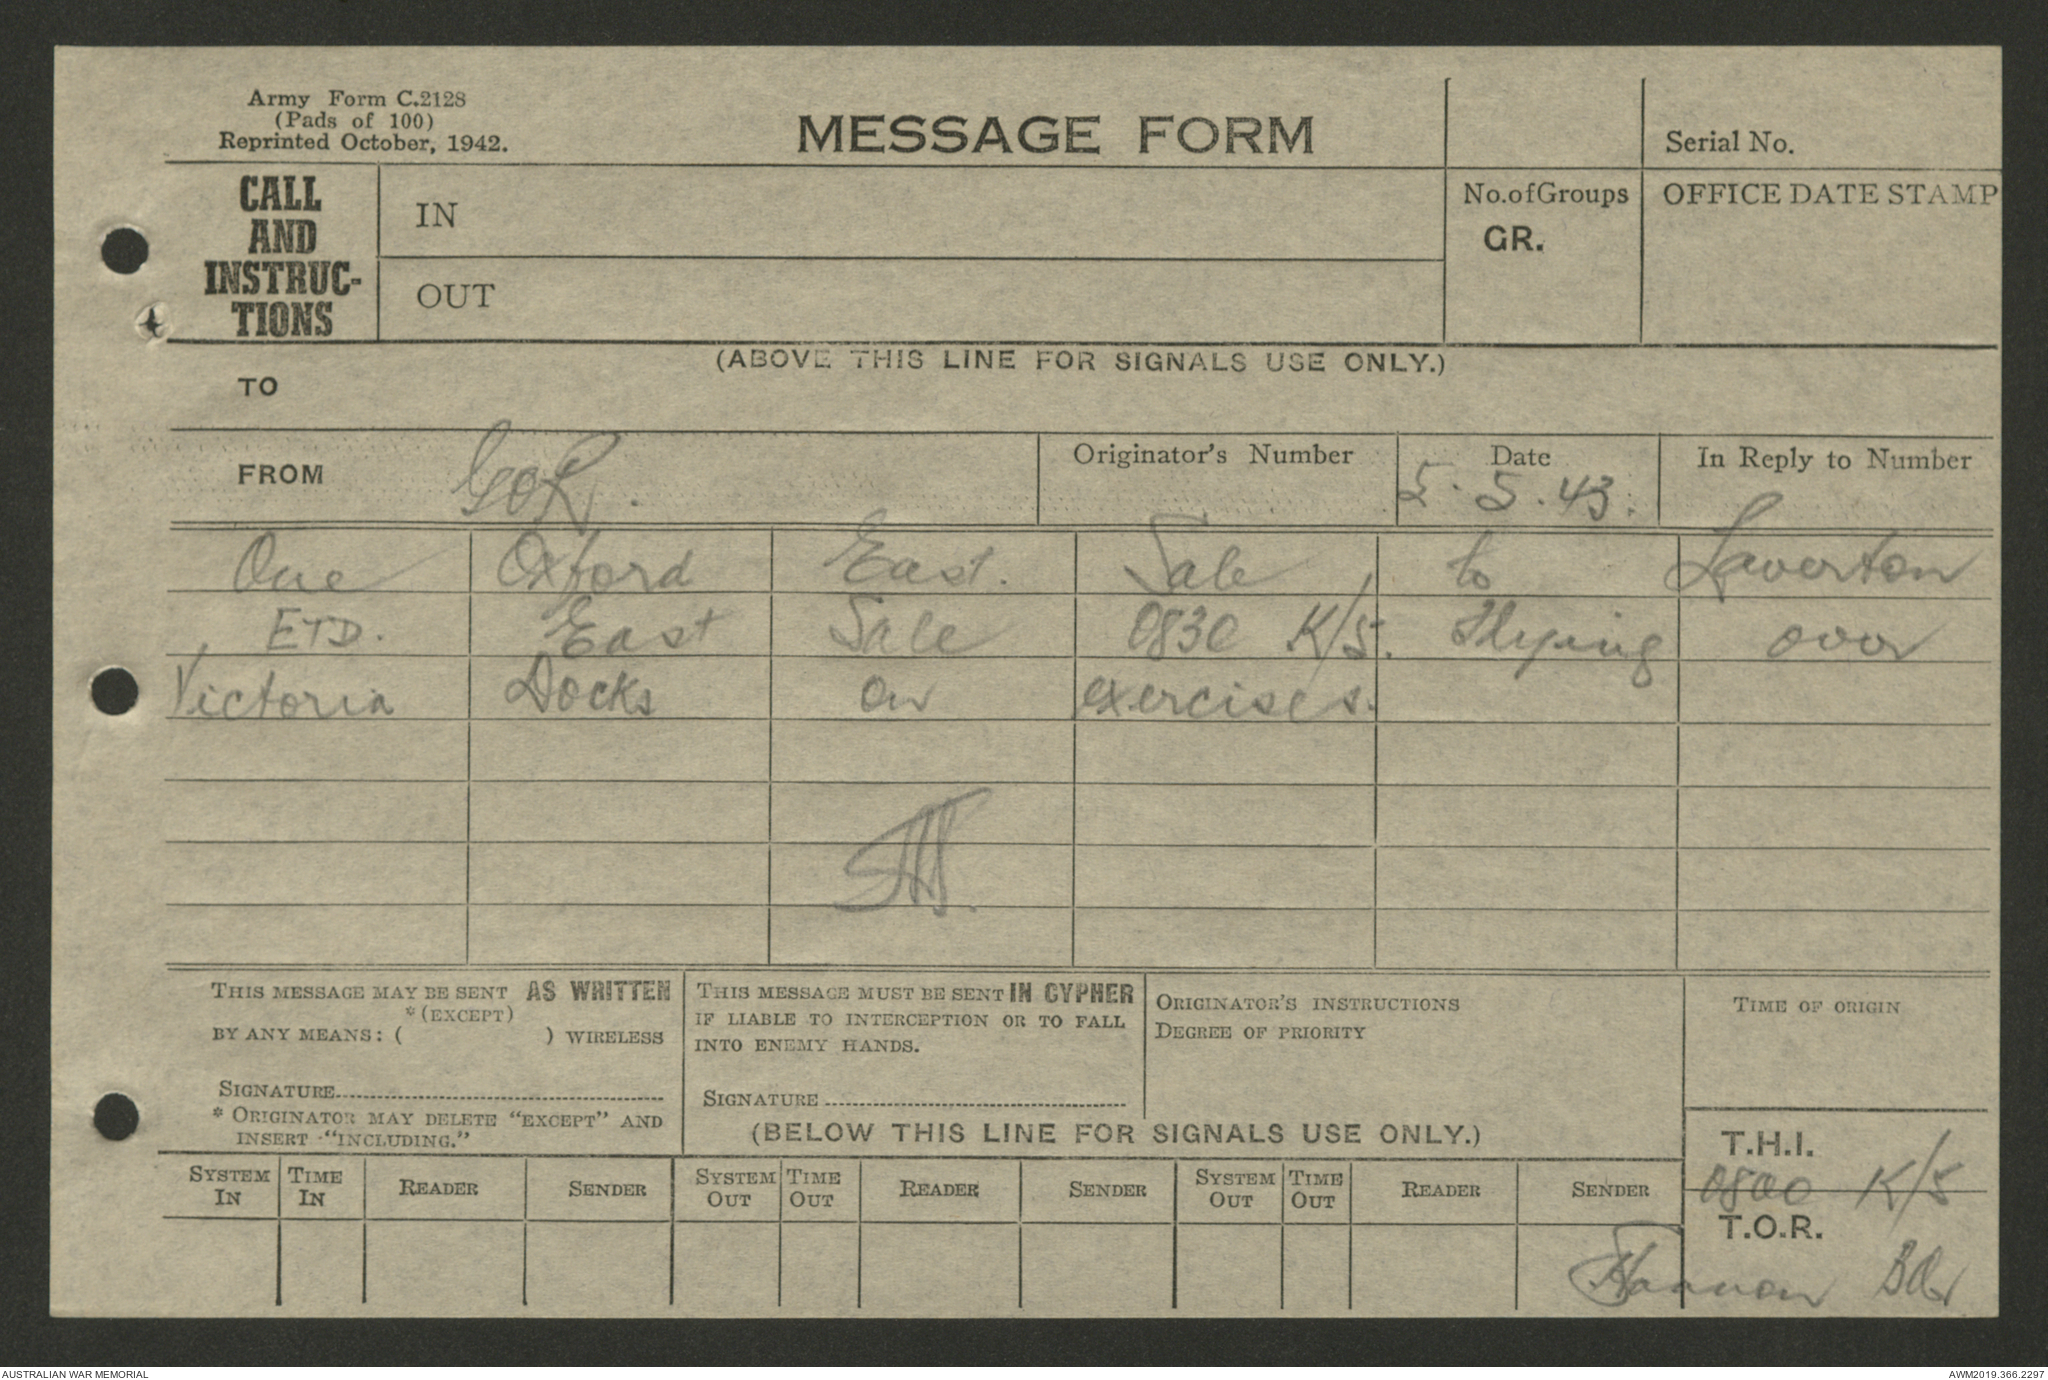 Army Form C.2128
(Pads of 100)
Reprinted October, 1942.
MESSAGE FORM
Serial No.
CALL
AND
INSTRUC-
TIONS
IN
OUT
No.of Groups
GR.
OFFICE DATE STAMP
(ABOVE THIS LINE FOR SIGNALS USE ONLY.)
TO
FROM GOR.
Originator's Number
Date
5.5.43.
In Reply to Number
One Oxford East. Sale to Laverton
ETD. East Sale 0830 K/5. Flying over
Victoria Docks on exercises.
THIS MESSAGE MAY BE SENT AS WRITTEN
*(EXCEPT)
BY ANY MEANS: ( ) WIRELESS
SIGNATURE
* ORIGINATOR MAY DELETE "EXCEPT" AND
INSERT "INCLUDING."
THIS MESSAGE MUST BE SENT IN CYPHER
IF LIABLE TO INTERCEPTION OR TO FALL
INTO ENEMY HANDS.
SIGNATURE
ORIGINATOR'S INSTRUCTIONS
DEGREE OF PRIORITY
TIME OF ORIGIN
(BELOW THIS LINE FOR SIGNALS USE ONLY.)
T.H.I.
0800 K/5
T.O.R.
SYSTEM IN TIME IN READER SENDER SYSTEM OUT TIME OUT READER SENDER SYSTEM OUT TIME OUT READER SENDER
Bdr
AUSTRALIAN WAR MEMORIAL
AWM2019.366.2297